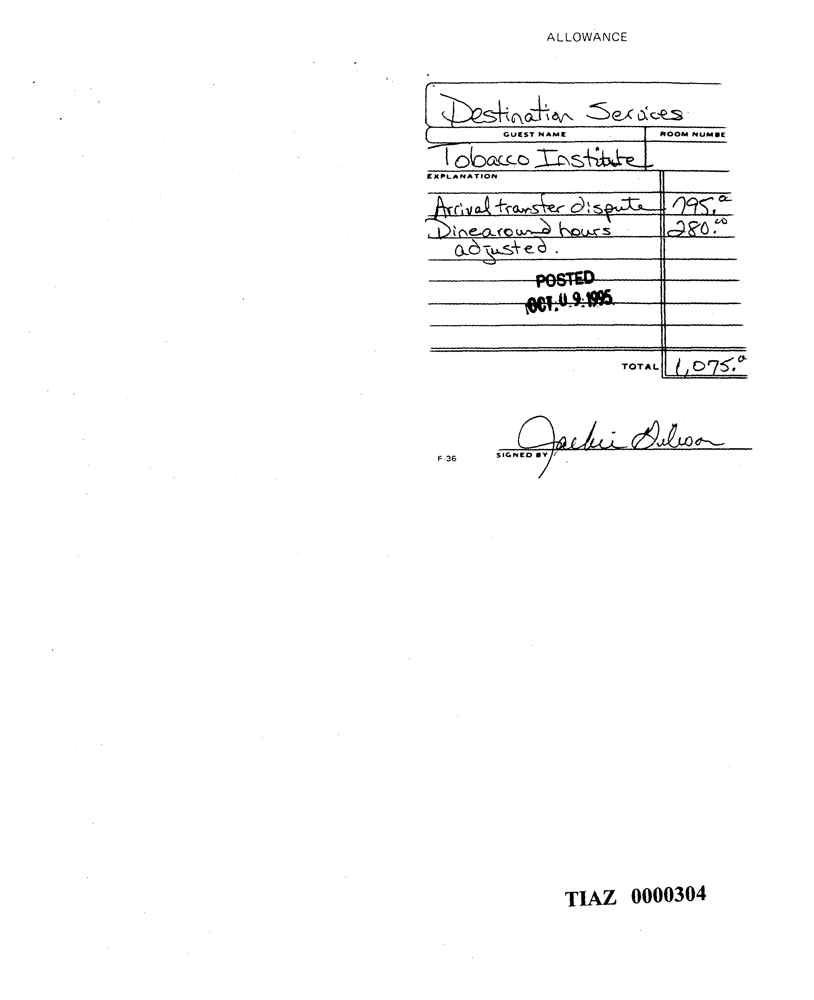 ALLOWANCE
Destination Services
GUEST NAME ROOM NUMBE
Tobacco Institute
EXPLANATION
Arrival transfer dispute 795.00
Dinearound hours 280.00
adjusted.
POSTED
OCT. 0 9. 1995
TOTAL 1,075.00
Jackie
SIGNED BY
F-36
TIAZ 0000304